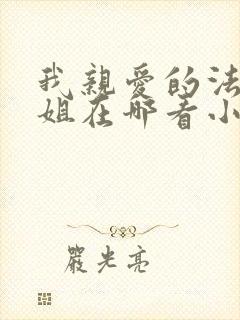 我親愛的法
姐在哪看小
嚴光亮